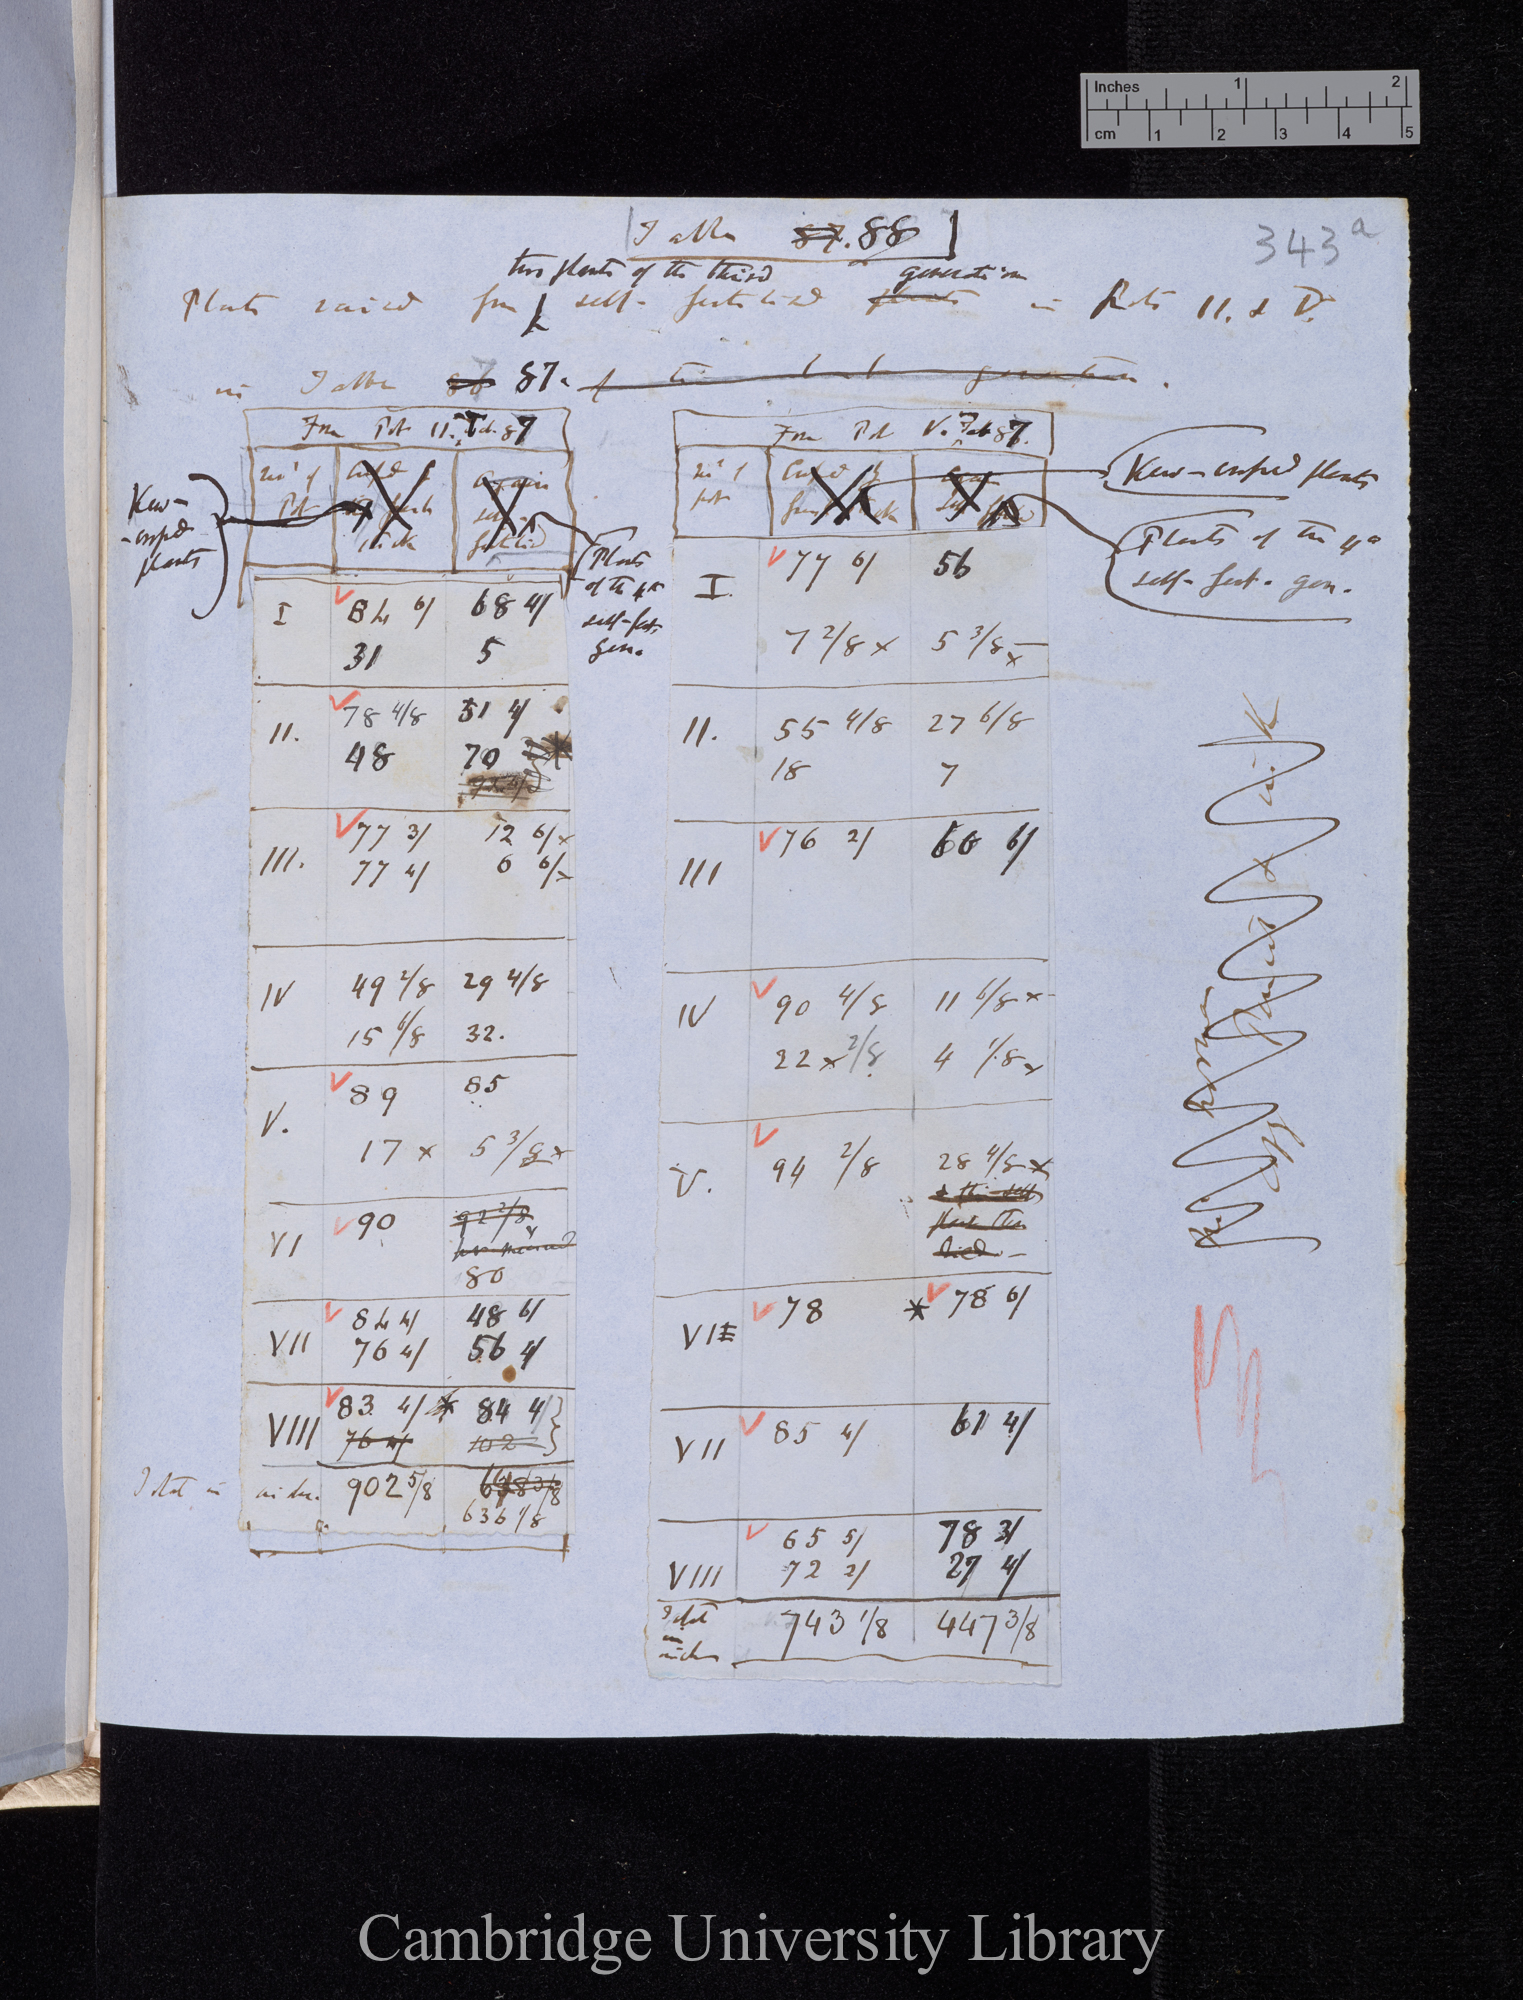 Inches 1 2
cm 1 2 3 4 5
343a
Table 87. 88
two plants of the third generation
Plants raised from self-fertilised plants in Pots II. & V.
in Table 86 87.
From Pot II. Tab. 87
No. of Pot
Kew-crossed plants
Plants of the 4th self-fert. gen.
I 84 6/ 68 4/
31 5
II. 78 4/8 51 4/
48 70
III. 77 3/ 12 6/ x
77 4/ 6 6/ x
IV 49 2/8 29 4/8
15 6/8 32.
V. 89 85
17 x 5 3/8 x
VI 90 92 2/8
80
VII 84 4/ 48 6/
76 4/ 56 4/
VIII 83 4/ * 84 4/
76 4/ 102
Total in inches. 902 5/8
636 1/8
From Pot V. Tab 87.
No. of pot
Kew-crossed plants
Plants of the 4th self-fert. gen.
I. 77 6/ 56
7 2/8 x 5 3/8 x
II. 55 4/8 27 6/8
18 7
III 76 2/ 60 6/
IV 90 4/8 11 6/8 x
22 x 2/8 4 1/8 x
V. 94 2/8 28 4/8 x
died
VI 78 * 78 6/
VII 85 4/ 61 4/
VIII 65 5/ 78 3/
72 2/ 27 4/
Total in inches 743 1/8 447 3/8
Cambridge University Library